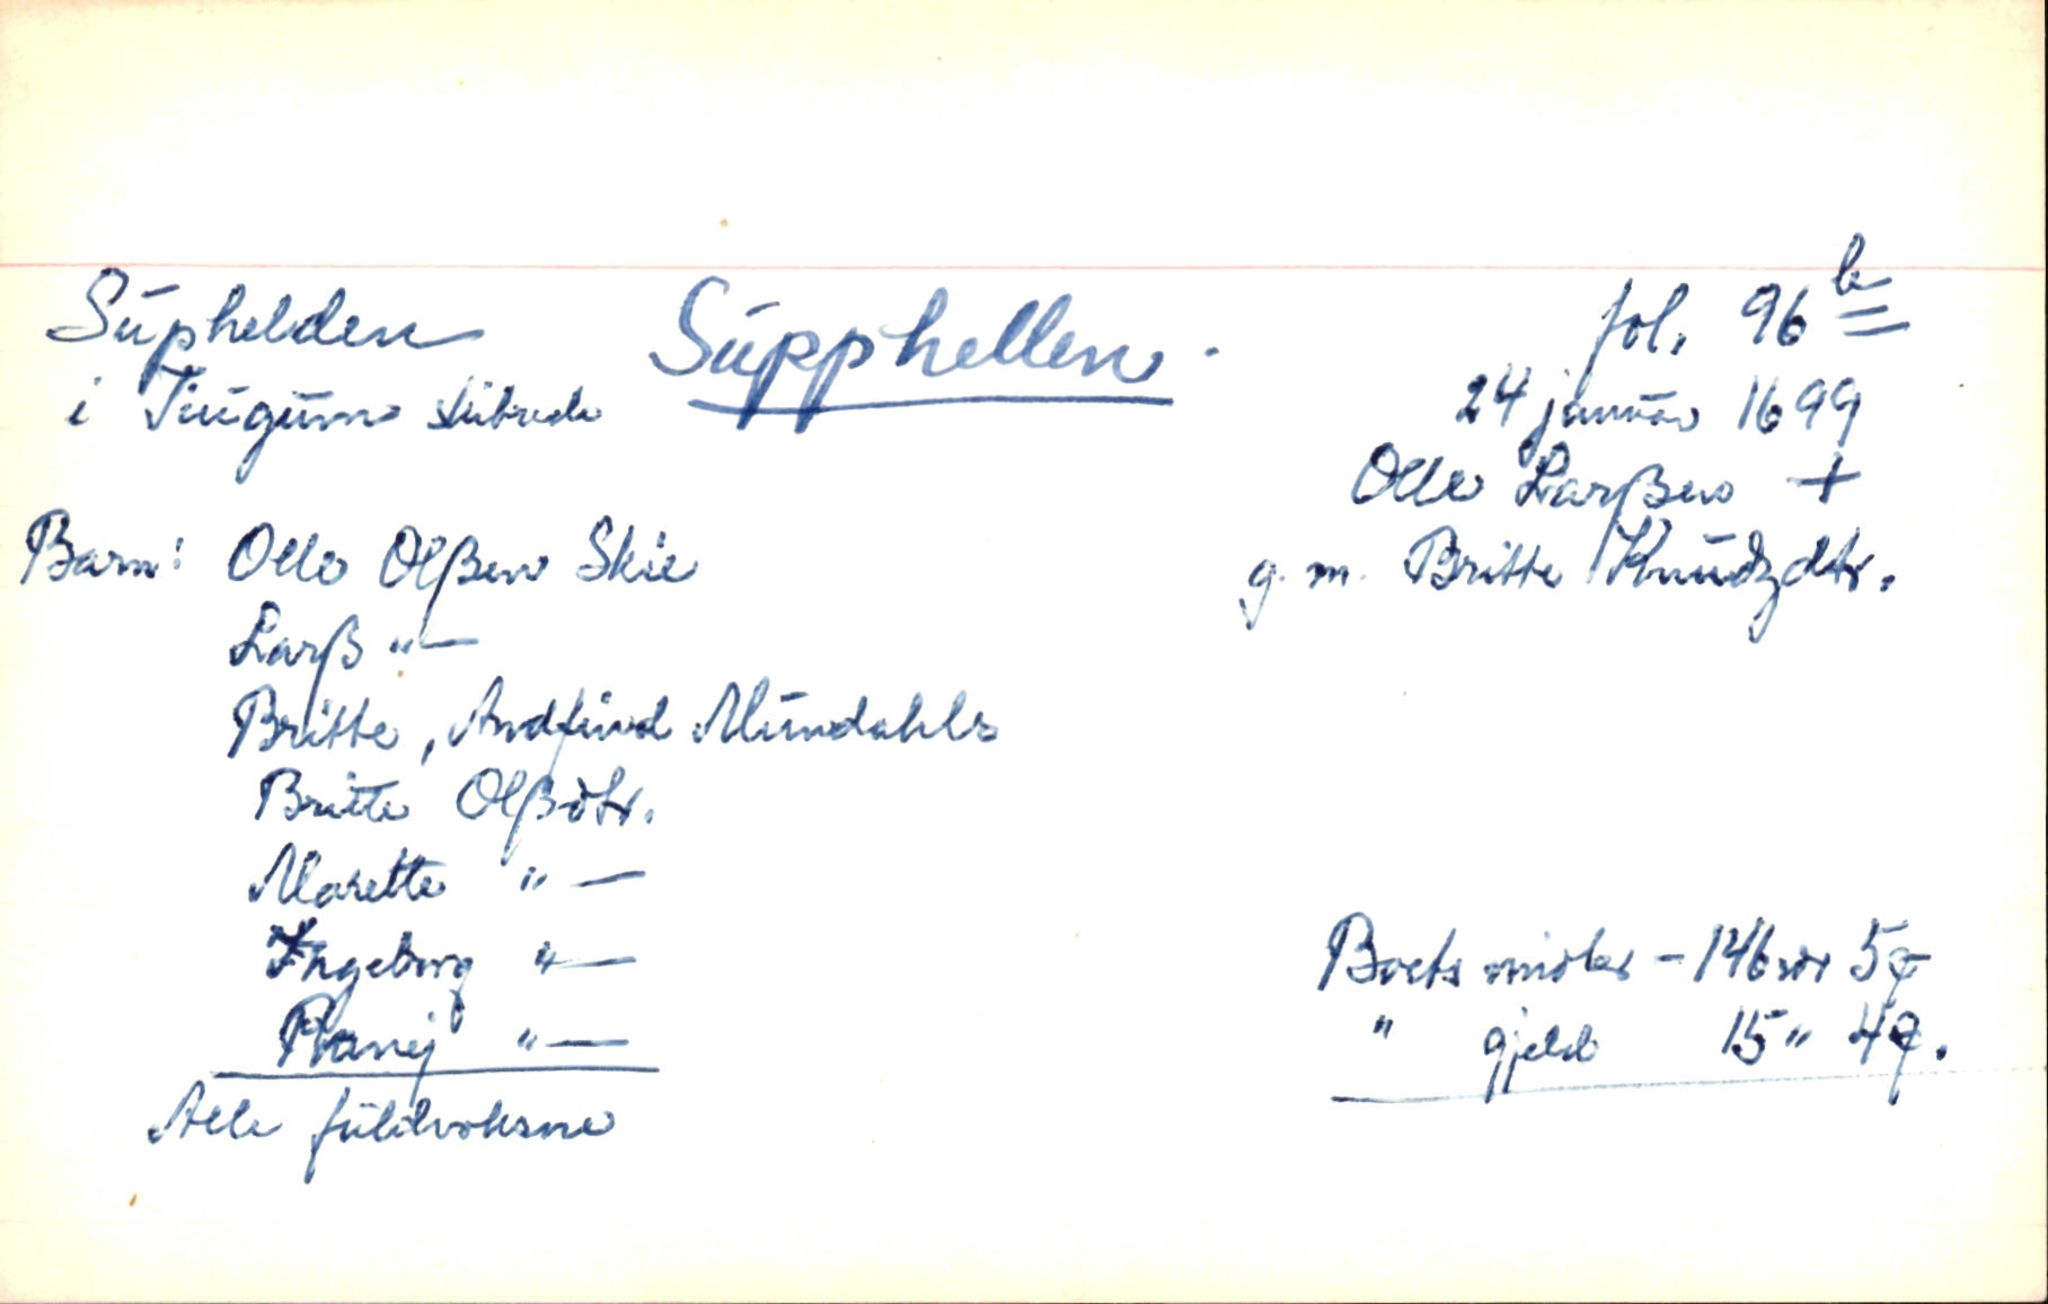 Supphellen.
Suphelden
i Tiugum skibrede
fol. 96 b
24 januar 1699
Olle Larßen +
g. m. Britte Knudzdtr.
Barn: Olle Olßen Skie
Larß "—
Britte, Andfind Mundahls
Britte Olßdtr.
Marette "—
Ingeborg "—
Ranej "—
Alle fuldvoksne
Boets midler – 146 rdr 5
" gjeld 15 " 4